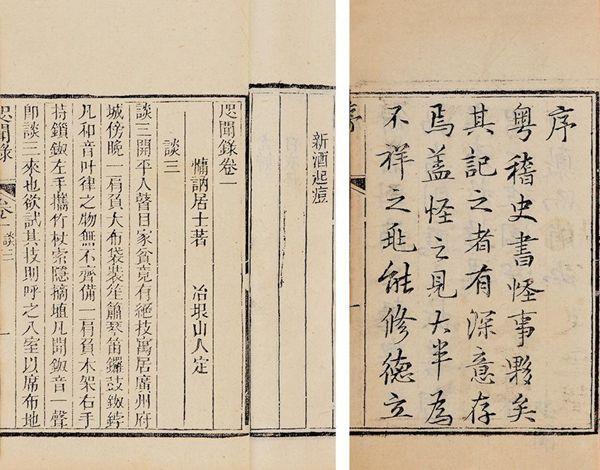 序
粵稽史書怪事夥矣
其記之者有深意存
焉蓋怪之見大半為
不祥之兆能修德立
新酒起痘
咫聞錄卷一
慵訥居士著 冶垠山人定
談三
談三開平人瞽目家貧竟有絕技寓居廣州府
城傍晚一肩負大布袋裝笙簫琴笛鑼鼓鈸鋍
凡和音叶律之物無不齊備一肩負木架右手
持鎖鈸左手攜竹杖索隱摘埴凡聞鈸音一聲
即談三來也欲試其技則呼之入室以席布地
咫聞錄 卷一 談三 一